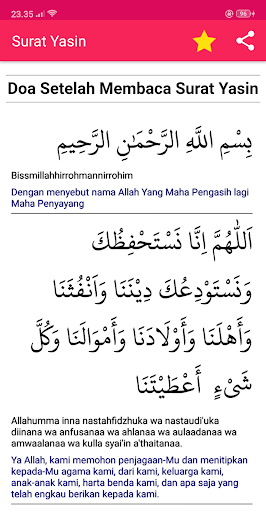 23.35
96
Surat Yasin
Doa Setelah Membaca Surat Yasin
بِسْمِ اللَّهِ الرَّحْمَٰنِ الرَّحِيمِ
Bissmillahhirrohmannirrohim
Dengan menyebut nama Allah Yang Maha Pengasih lagi
Maha Penyayang
اَللّٰهُمَّ اِنَّا نَسْتَحْفِظُكَ
وَنَسْتَوْدِعُكَ دِيْنَنَا وَاَنْفُسَنَا
وَأَهْلَنَا وَأَوْلَادَنَا وَأَمْوَالَنَا وَكُلَّ
شَىْءٍ أَعْطَيْتَنَا
Allahumma inna nastahfidzhuka wa nastaudi'uka
diinana wa anfusanaa wa ahlanaa wa aulaadanaa wa
amwaalanaa wa kulla syai'in a'thaitanaa.
Ya Allah, kami memohon penjagaan-Mu dan menitipkan
kepada-Mu agama kami, dari kami, keluarga kami,
anak-anak kami, harta benda kami, dan apa saja yang
telah engkau berikan kepada kami.